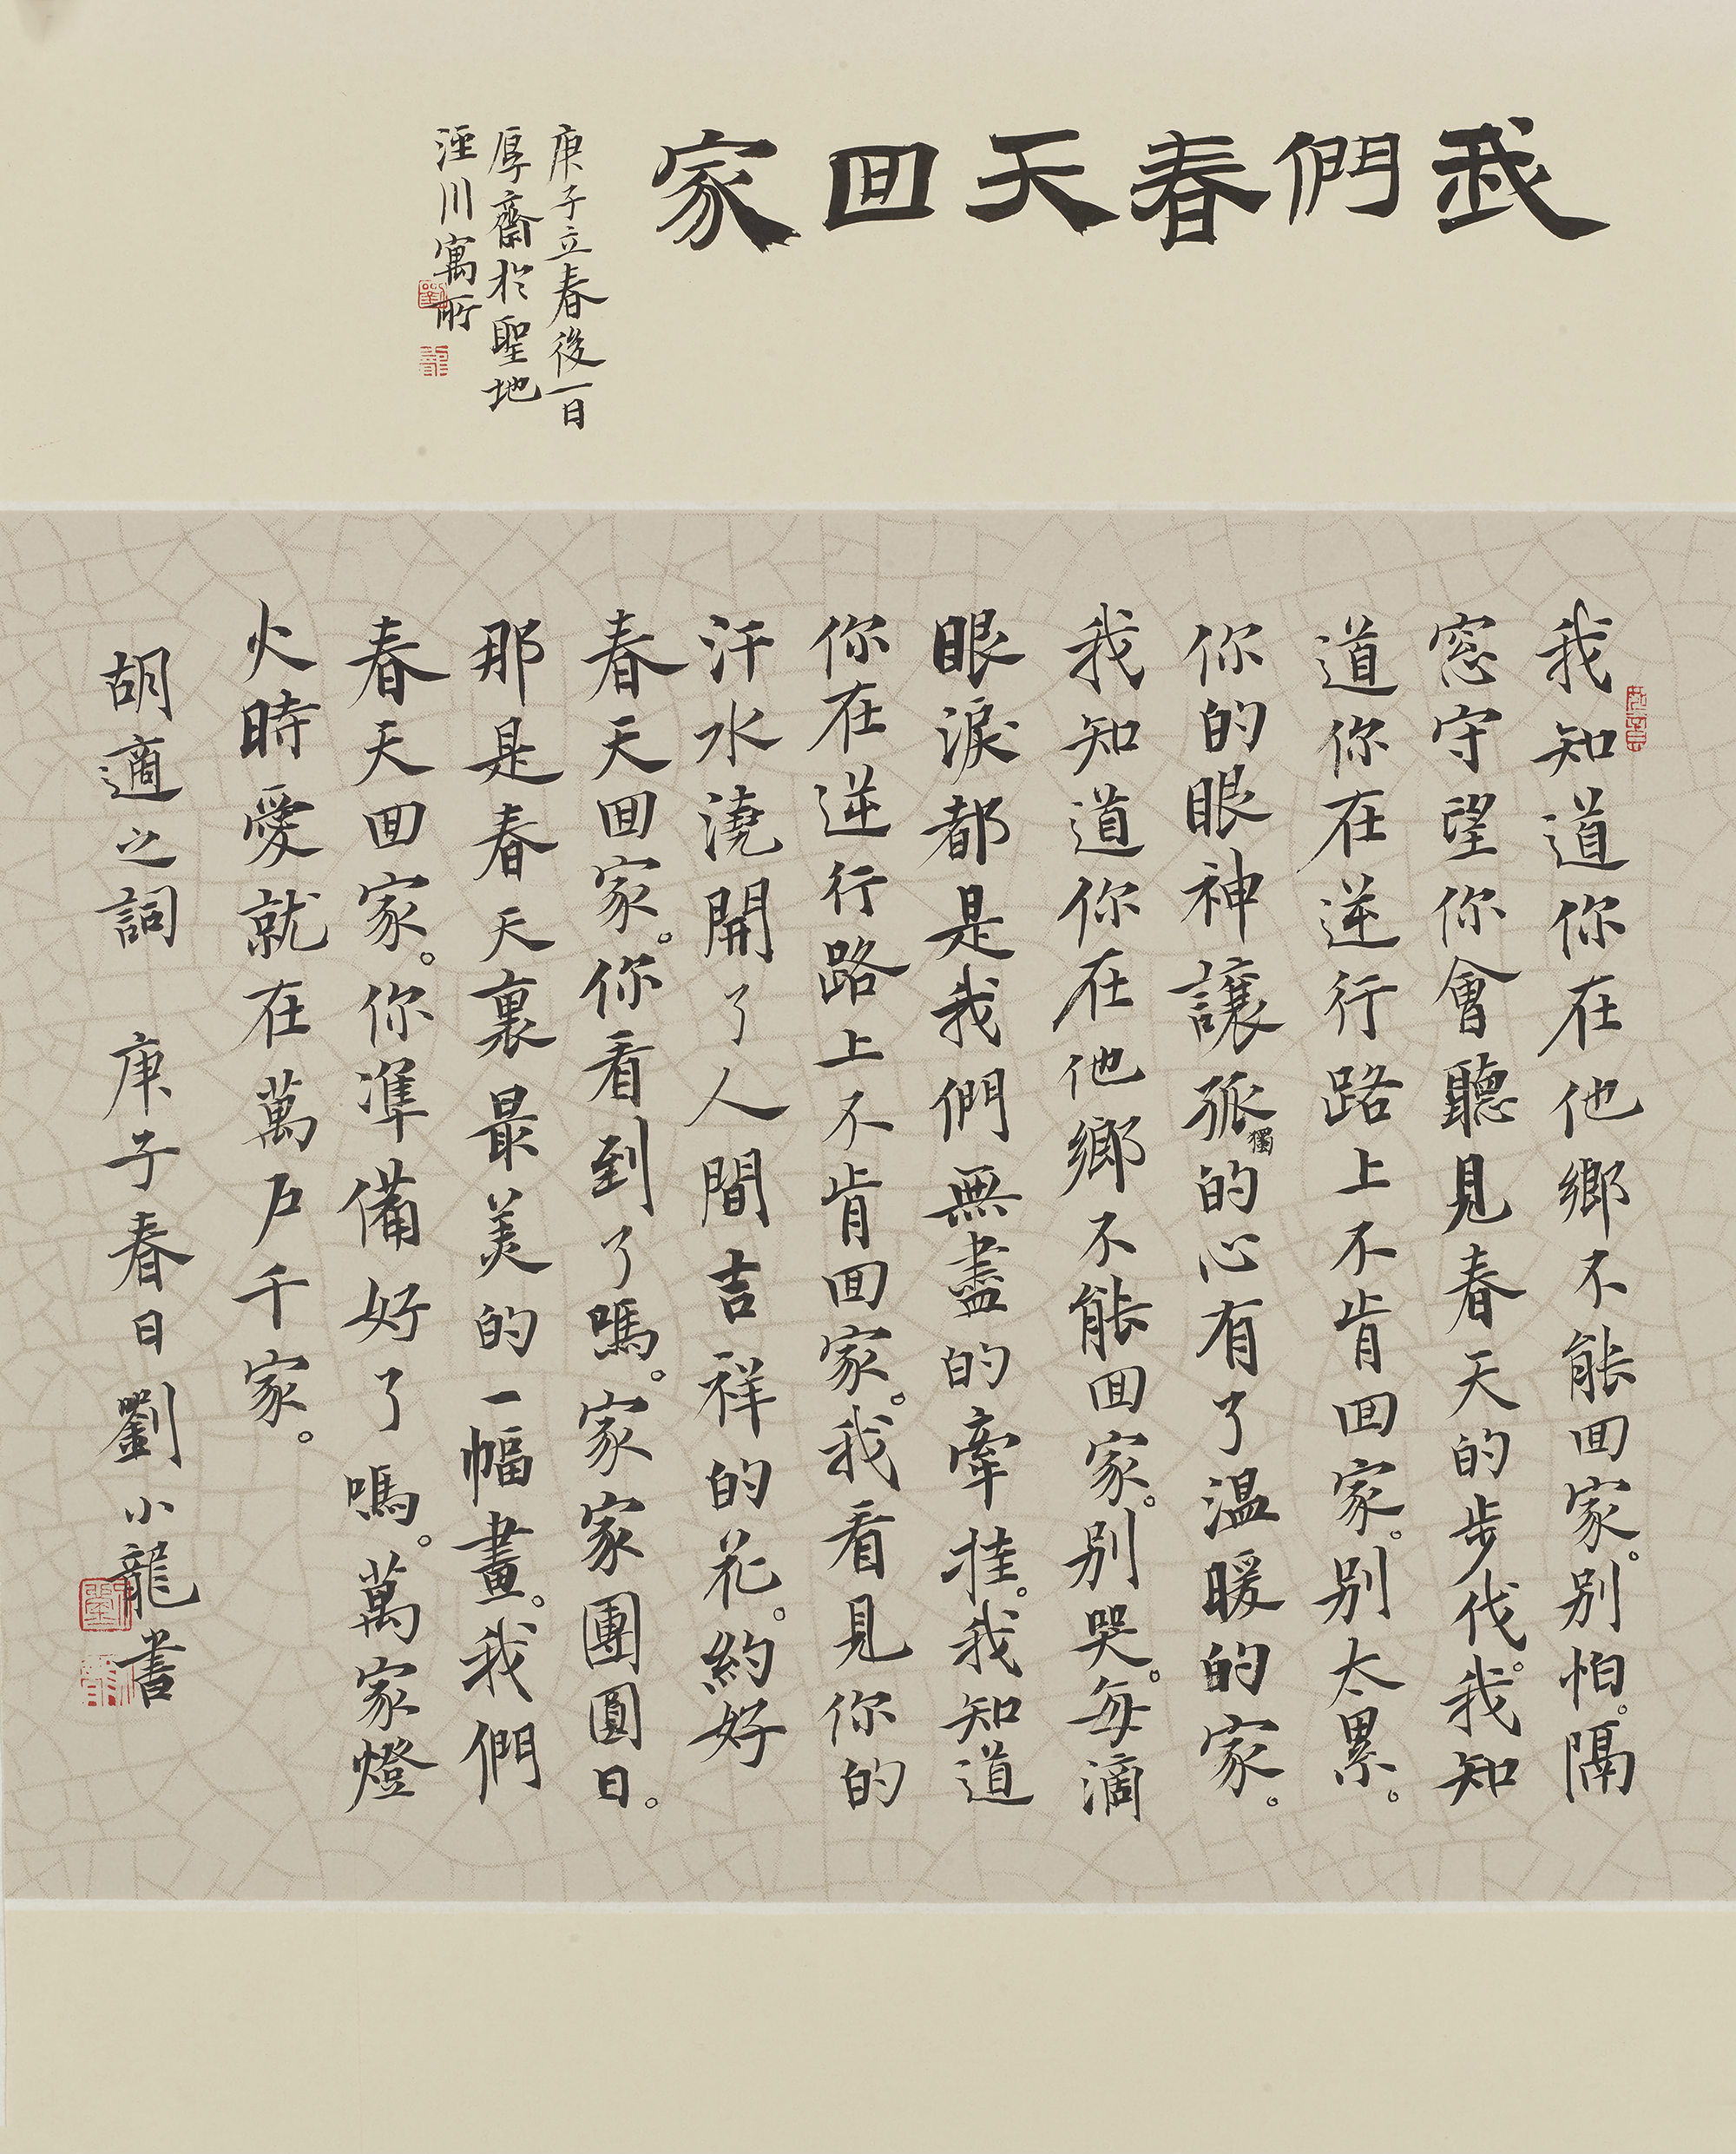 我們春天回家
庚子立春後一日
厚齋於聖地
涇川寓所
我知道你在他鄉不能回家。别怕。隔
窓守望你會聽見春天的步伐。我知
道你在逆行路上不肯回家。别太累。
你的眼神讓孤獨的心有了温暖的家。
我知道你在他鄉不能回家。别哭。每滴
眼淚都是我們無盡的牽挂。我知道
你在逆行路上不肯回家。我看見你的
汗水澆開了人間吉祥的花。約好
春天回家。你看到了嗎。家家團圓日。
那是春天裏最美的一幅畫。我們
春天回家。你準備好了嗎。萬家燈
火時愛就在萬户千家。
胡適之詞 庚子春日劉小龍書